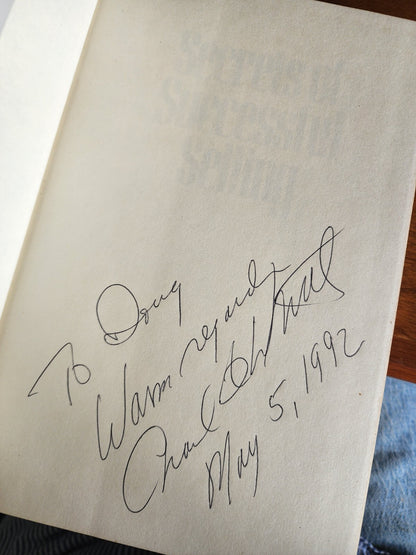 To Doug
Warm regards,
May 5, 1992